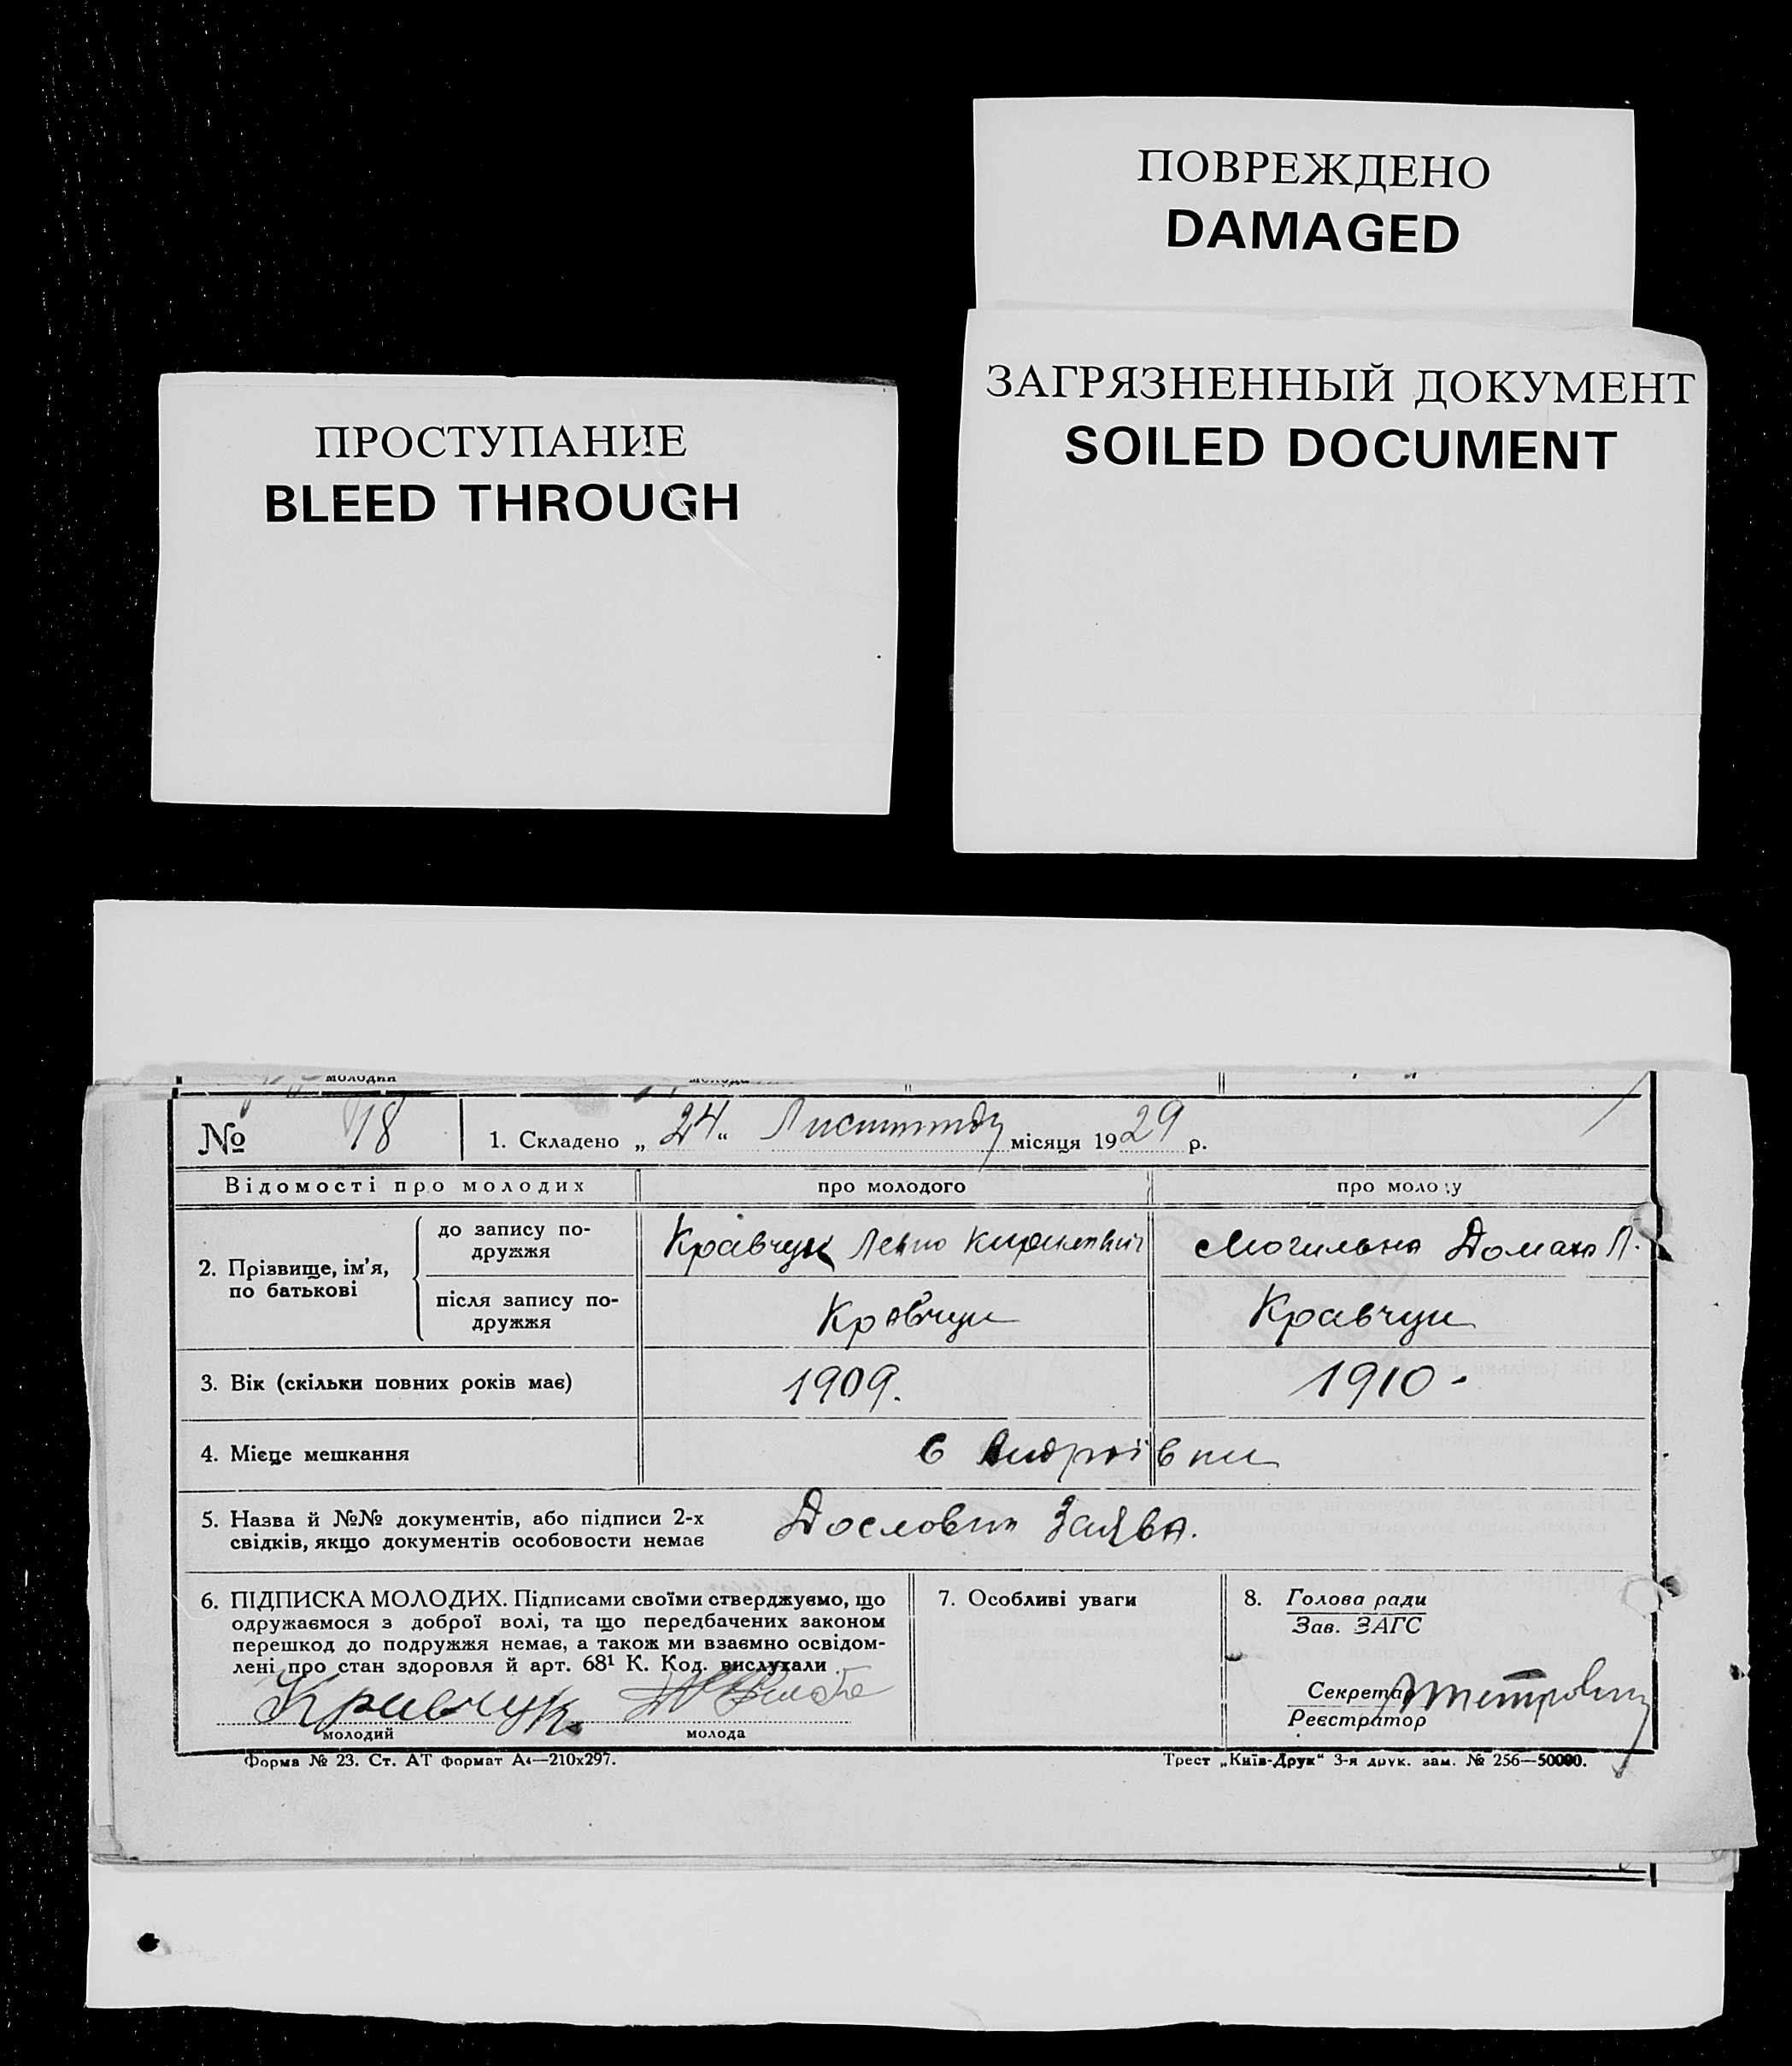 ПОВРЕЖДЕНО
DAMAGED
ЗАГРЯЗНЕННЫЙ ДОКУМЕНТ
SOILED DOCUMENT
ПРОСТУПАНИЕ
BLEED THROUGH
молодий
№ 18
1. Складено „ 24 “ Листопаду місяця 1929 р.
Відомості про молодих
про молодого
про молоду
2. Прізвище, ім'я,
по батькові
до запису по-
дружжя
Кравчук
Могильна Домаха П.
після запису по-
дружжя
Кравчук
Кравчук
3. Вік (скільки повних років має)
1909.
1910-
4. Місце мешкання
с Андріївки
5. Назва й №№ документів, або підписи 2-х
свідків, якщо документів особовости немає
Дословна Заява.
6. ПІДПИСКА МОЛОДИХ. Підписами своїми стверджуємо, що
одружаємося з доброї волі, та що передбачених законом
перешкод до подружжя немає, а також ми взаємно освідом-
лені про стан здоровля й арт. 68¹ К. Код. вислухали
Кравчук
молодий
молода
7. Особливі уваги
8. Голова ради
Зав. ЗАГС
Секретар
Реєстратор
Форма № 23. Ст. АТ формат А4—210х297.
Трест „Київ-Друк“ 3-я друк. зам. № 256—50000.